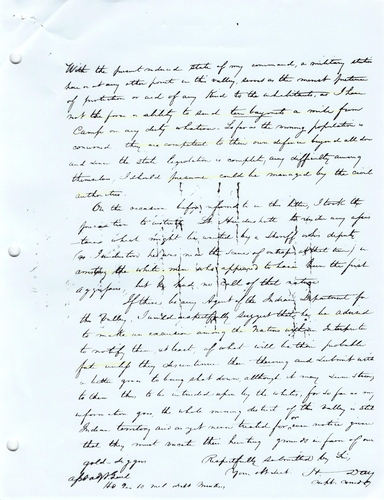 With the present reduced state of my command, a military station
here or at any other point in this valley, serves as the merest gesture
of protection or aid of any kind to the inhabitants, as I have
not the force or ability to send ten bayonets a mile from
Camp on any duty whatever. So far as the mining population is
concerned they are competent to their own defence beyond all doubt
and since the state legislation is complete, any difficulty among
themselves, I should presume could be managed by the civil
authorities.
On the occasion before referred to in this letter, I took the
precaution to instruct Lt. to render any assis
tance which might be wanted by a Sheriff or his deputy
in
arresting the white men who appeared to have been the first
aggressors, but he had no call of that nature
If there be any Agent of the Indian Department for
the Valley, I would respectfully suggest that he be advised
to make an excursion among the Natives with an Interpreter
to notify them at least, of what will be their probable
fate unless they discontinue their thieving and submit with
a better grace to being shot down, although it may seem strange
to them thus to be intruded upon by the whites, for so far as my
information goes the whole mining district of the Valley is still
Indian territory and as yet no treaties held, or even notice given
that they must vacate their hunting grounds in favor of our
gold diggers
Respectfully submitted by Sir,
Your Obdt. H. Day